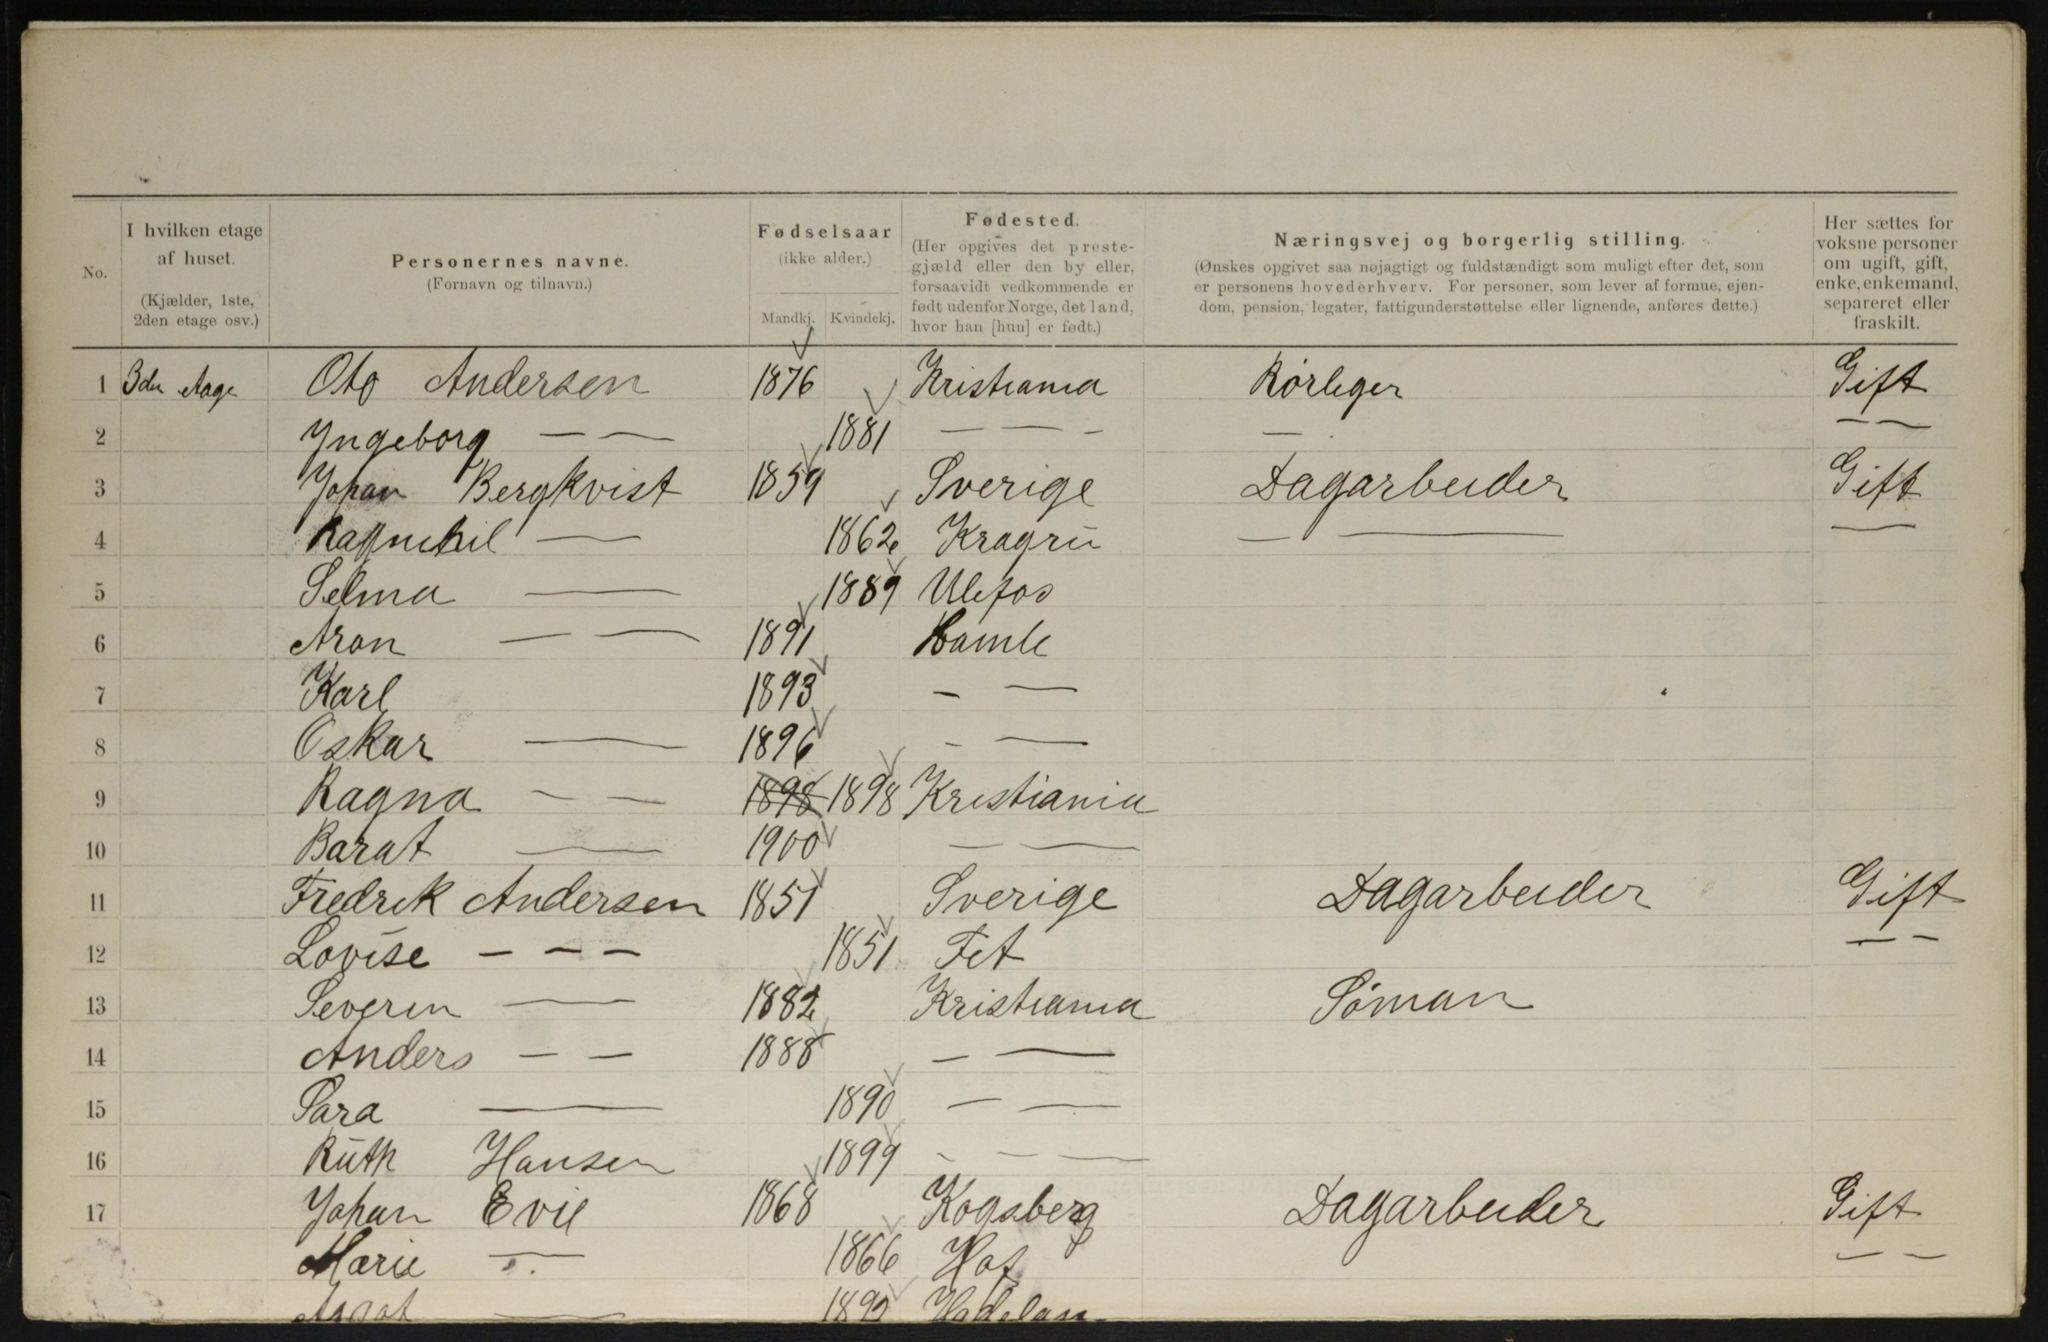 No.
I hvilken etage af huset.
(Kjælder, 1ste, 2den etage osv.)
Personernes navne.
(Fornavn og tilnavn.)
Fødselsaar
(ikke alder.)
Mandkj. Kvindekj.
Fødested.
(Her opgives det prestegjæld eller den by eller, forsaavidt vedkommende er født udenfor Norge, det land, hvor han [hun] er født.)
Næringsvej og borgerlig stilling.
(Ønskes opgivet saa nøjagtigt og fuldstændigt som muligt efter det, som er personens hovederhverv. For personer, som lever af formue, ejendom, pension, legater, fattigunderstøttelse eller lignende, anføres dette.)
Her sættes for voksne personer om ugift, gift, enke, enkemand, separeret eller fraskilt.
1 3du etage Oto Andersen 1876 Kristiania Rörleger Gift
2 Yngeborg — — 1881 — — - — — —
3 Johan Bergkvist 1859 Sverige Dagarbeider Gift
4 Ragnehil — 1862 Kragrü — — —
5 Selma — 1889 Ulefos
6 Aron — — 1891 Bamle
7 Karl 1893 - —
8 Oskar — 1896 - —
9 Ragna — — 1898 1898 Kristiania
10 Barat — 1900 — —
11 Fredrik Andersen 1851 Sverige Dagarbeider Gift
12 Lovise — — — 1851 Fet — —
13 Severin — 1882 Kristiania Söman
14 Anders — — 1888 — —
15 Sara — 1890 — —
16 Ruth Hansen 1899 - — —
17 Johan Evie 1868 Kogsberg Dagarbeider Gift
Marie — 1866 Hof — —
— 1892 Hadelan